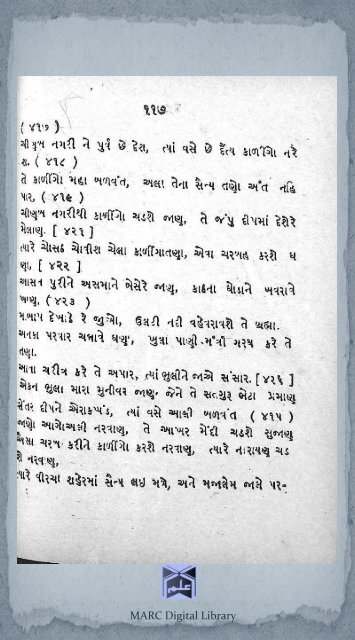 ૧૧૭
( ૪૧૭ )
ચીણુખ નગરી ને પુર્વ છે દેશ, ત્યાં વસે છે દૈત્ય કાળીંગો નરે
શ. ( ૪૧૮ )
તે કાળીંગો મહા બળવંત, અલા તેના સૈન્ય તણો અંત નહિ
પાર. ( ૪૧૯ )
ચીણુખ નગરીથી કાળીંગો ચડશે જાણુ, તે જંપુ દીપમાં દેશેરે
મેલાણુ. [ ૪૨૧ ]
ત્યારે ચોસઠ ચોત્રીશ ચેલા કાળીંગાતણા, એવા ચરખહ કરશે ઘ
ણા, [ ૪૨૨ ]
આસન પુરીને અસમાને બેસેરે જાણુ, કાષ્ઠના ઘોડાને ખવરાવે
ખાણુ. ( ૪૨૩ )
દેખાડે રે જુઓ, ઉલટી નદી વહેવરાવશે તે
પરવાર ચલાવે ઘણુ, ખુત્રા પાણી મંત્રી ગરથ કરે તે
તણા.
આવા ચરીત્ર કરે તે અપાર, ત્યાં ભુલીને જાએ સંસાર. [ ૪૨૬ ]
એકન ભુલા મારા મુનીવર જાણુ, જેને તે સતગુર ભેટા પ્રમાણુ
દીપને ઐરાકખંડ, ત્યાં વસે આલી બળવંત ( ૪૧૫ )
જાણો આગેાઅલી નરવાણુ, તે આખર મેંદી ચડશે સુજાણુ
ચરખ કરીને કાળીંગો કરશે નરવાણુ, ત્યારે નારાયણ ચડ
શે નરવાણુ,
ત્યારે વીરચા શહેરમાં સૈન્ય લઇ મળે, અને મજાલેમ જાશે પર-
علم
MARC Digital Library